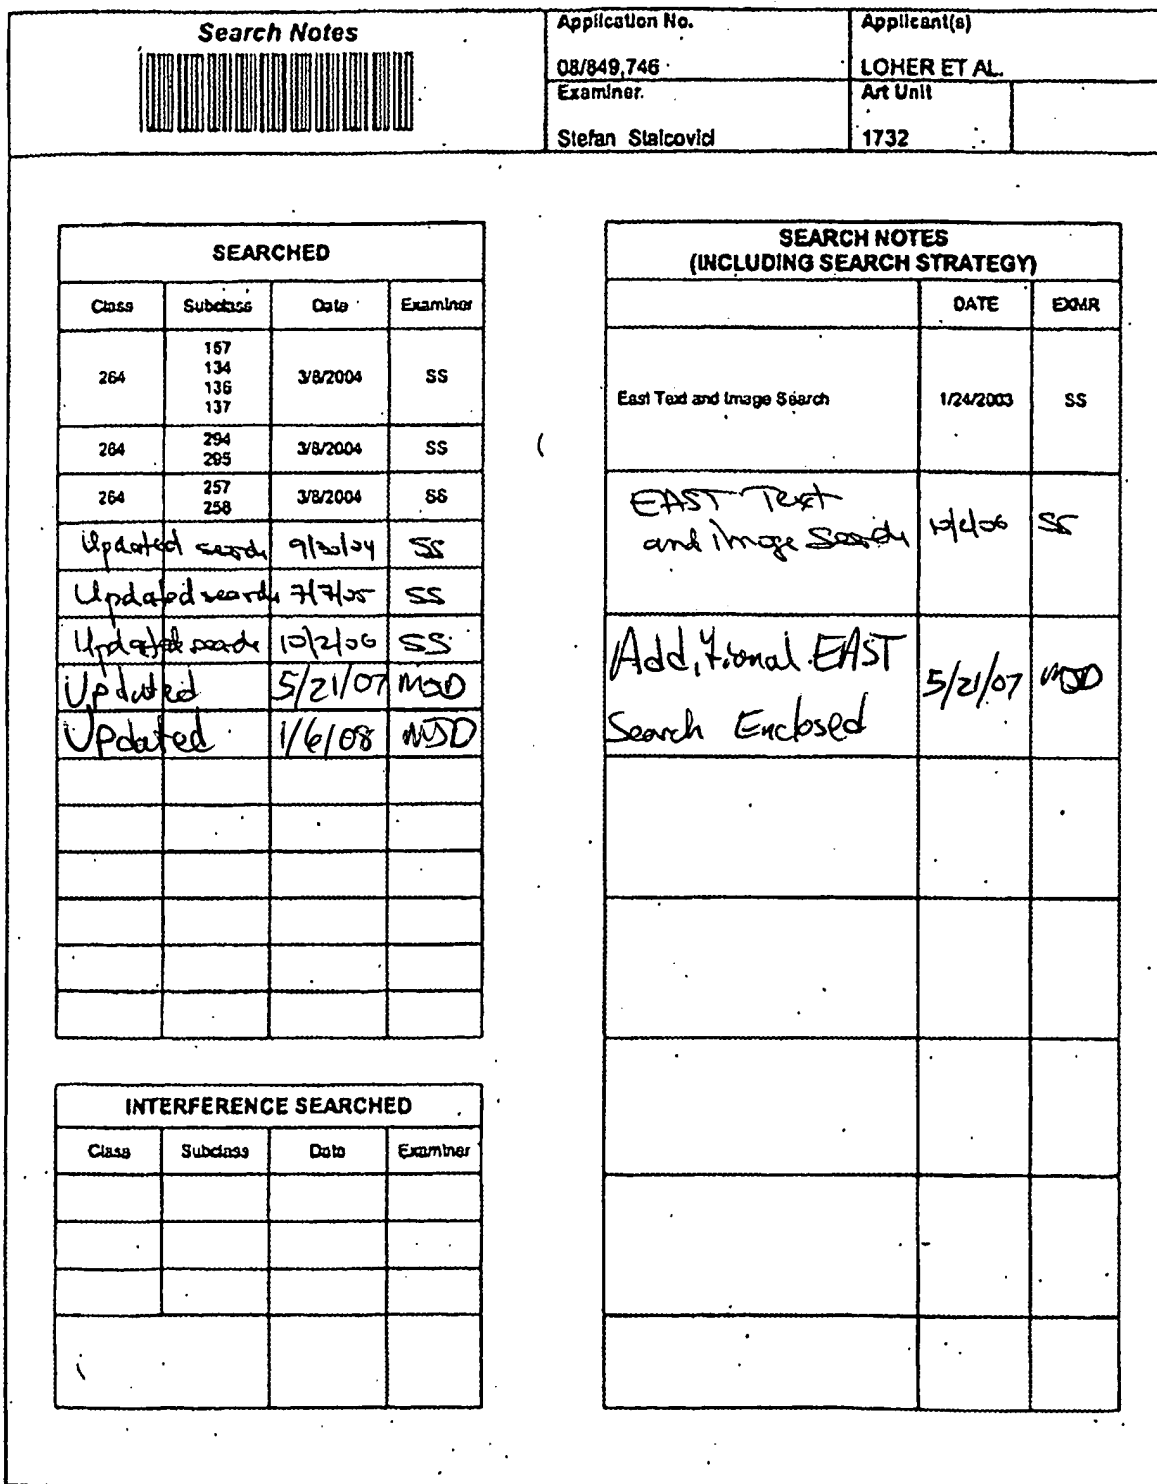 Search Notes
Application No.
Applicant(s)
08/849,746
LOHER ET AL.
Examiner.
Art Unit
Stefan Staicovici
1732
SEARCHED
Class Subclass Date Examiner
264 167 134 136 137 3/8/2004 SS
264 294 295 3/8/2004 SS
264 257 258 3/8/2004 SS
Updated search 9/30/04 SS
Updated search 7/7/05 SS
Updated search 10/2/06 SS
Updated 5/21/07 MJD
Updated 1/6/08 MJD
INTERFERENCE SEARCHED
Class Subclass Date Examiner
SEARCH NOTES
(INCLUDING SEARCH STRATEGY)
DATE EXMR
East Text and Image Search 1/24/2003 SS
EAST Text
and image Search 10/2/06 SS
Additional EAST
Search Enclosed 5/21/07 MJD